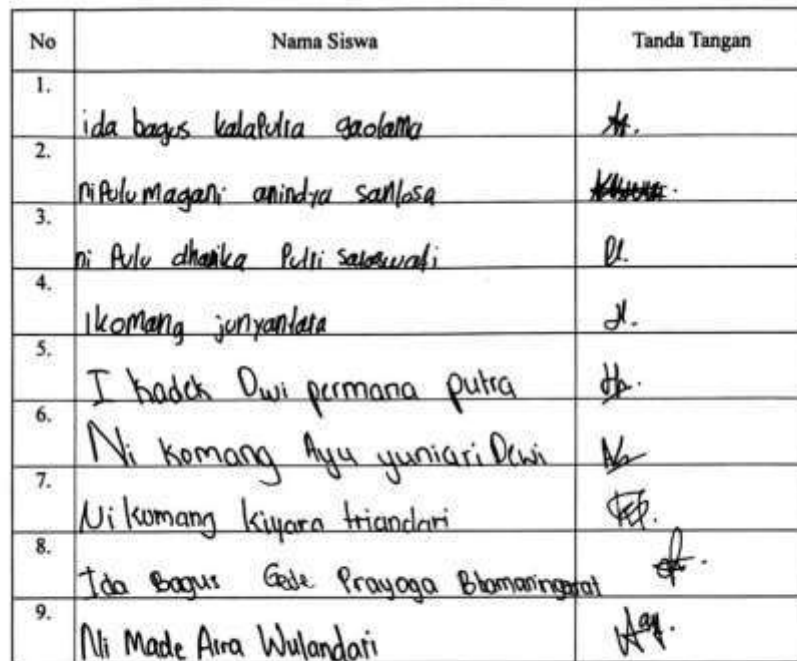 No Nama Siswa Tanda Tangan
1. ida bagus kalaputra gaotama
2. ni Putu magani anindya santosa
3. ni Putu dharika Putri saraswati
4. I komang junyantara
5. I kadek Dwi permana putra
6. Ni komang Ayu yuniari Dewi
7. Ni komang kiyara triandari
8. Ida Bagus Gede Prayoga
9. Ni Made Aira Wulandari